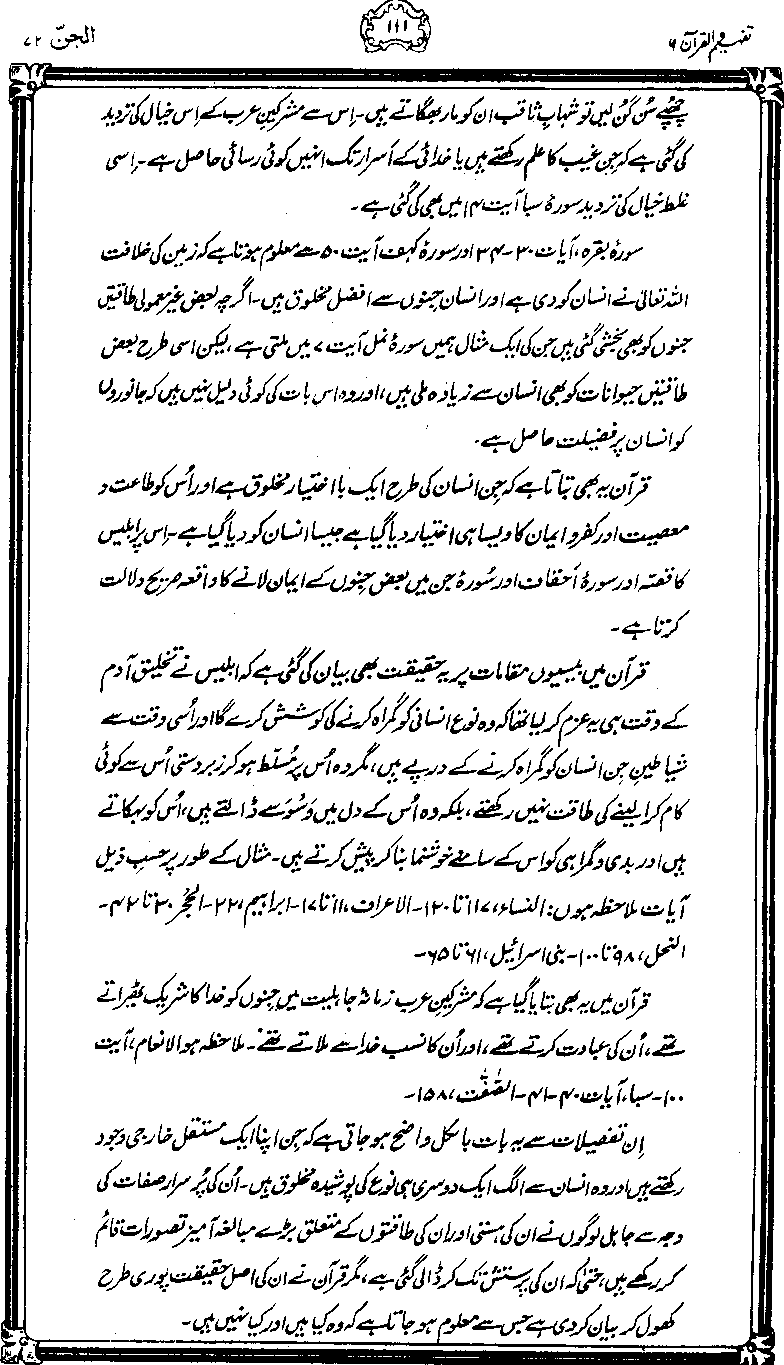 تفہیم القرآن ۶
۱۱۱
الجنّ ۷۲
چھپے سُن گُن لیں تو شہابِ ثاقب ان کو مار بھگاتے ہیں۔ اِس سے مشرکینِ عرب کے اِس خیال کی تردید
کی گئی ہے کہ جِن غیب کا علم رکھتے ہیں یا خدائی کے اَسرار تک انہیں کوئی رسائی حاصل ہے۔ اِسی
غلط خیال کی تردید سورۂ سبا آیت ۱۴ میں بھی کی گئی ہے۔
سورۂ بقرہ، آیات ۳۰-۳۴ اور سورۂ کہف آیت ۵۰ سے معلوم ہوتا ہے کہ زمین کی خلافت
اللہ تعالیٰ نے انسان کو دی ہے اور انسان جِنوں سے افضل مخلوق ہیں۔ اگرچہ بعض غیر معمولی طاقتیں
جِنوں کو بھی بخشی گئی ہیں جن کی ایک مثال ہمیں سورۂ نمل آیت ۷ میں ملتی ہے، لیکن اسی طرح بعض
طاقتیں حیوانات کو بھی انسان سے زیادہ ملی ہیں، اور وہ اس بات کی کوئی دلیل نہیں ہیں کہ جانوروں
کو انسان پر فضیلت حاصل ہے۔
قرآن یہ بھی بتاتا ہے کہ جِن انسان کی طرح ایک با اختیار مخلوق ہے اور اُس کو طاعت و
معصیت اور کفر و ایمان کا ویسا ہی اختیار دیا گیا ہے جیسا انسان کو دیا گیا ہے۔ اِس پر ابلیس
کا قصّہ اور سورۂ اَحقاف اور سُورۂ جن میں بعض جِنوں کے ایمان لانے کا واقعہ صریح دلالت
کرتا ہے۔
قرآن میں بیسیوں مقامات پر یہ حقیقت بھی بیان کی گئی ہے کہ ابلیس نے تخلیقِ آدم
کے وقت ہی یہ عزم کر لیا تھا کہ وہ نوعِ انسانی کو گمراہ کرنے کی کوشش کرے گا اور اُسی وقت سے
شیاطینِ جِن انسان کو گمراہ کرنے کے درپے ہیں، مگر وہ اُس پر مُسلّط ہو کر زبردستی اُس سے کوئی
کام کرا لینے کی طاقت نہیں رکھتے، بلکہ وہ اُس کے دل میں وَسْوَسے ڈالتے ہیں، اُس کو بہکاتے
ہیں اور بدی و گمراہی کو اس کے سامنے خوشنما بنا کر پیش کرتے ہیں۔ مثال کے طور پر حسبِ ذیل
آیات ملاحظہ ہوں: النساء، ۱۱۷ تا ۱۲۰۔ الاعراف، ۱۱ تا ۱۷۔ ابراہیم، ۲۲۔ الحجر ۳۰ تا ۴۲۔
النحل، ۹۸ تا ۱۰۰۔ بنی اسرائیل، ۶۱ تا ۶۵۔
قرآن میں یہ بھی بتایا گیا ہے کہ مشرکینِ عرب زمانۂ جاہلیت میں جِنوں کو خدا کا شریک ٹھیراتے
تھے، اُن کی عبادت کرتے تھے، اور اُن کا نسب خدا سے ملاتے تھے۔ ملاحظہ ہو الانعام، آیت
۱۰۰۔ سبا، آیات ۴۰-۴۱۔ الصّٰفّٰت، ۱۵۸۔
اِن تفصیلات سے یہ بات بالکل واضح ہو جاتی ہے کہ جِن اپنا ایک مستقل خارجی وجود
رکھتے ہیں اور وہ انسان سے الگ ایک دوسری ہی نوع کی پوشیدہ مخلوق ہیں۔ اُن کی پُر سرار صفات کی
وجہ سے جاہل لوگوں نے ان کی ہستی اور ان کی طاقتوں کے متعلق بڑے مبالغہ آمیز تصورات قائم
کر رکھے ہیں، حتّٰی کہ ان کی پرستش تک کر ڈالی گئی ہے، مگر قرآن نے ان کی اصل حقیقت پوری طرح
کھول کر بیان کر دی ہے جس سے معلوم ہو جاتا ہے کہ وہ کیا ہیں اور کیا نہیں ہیں۔